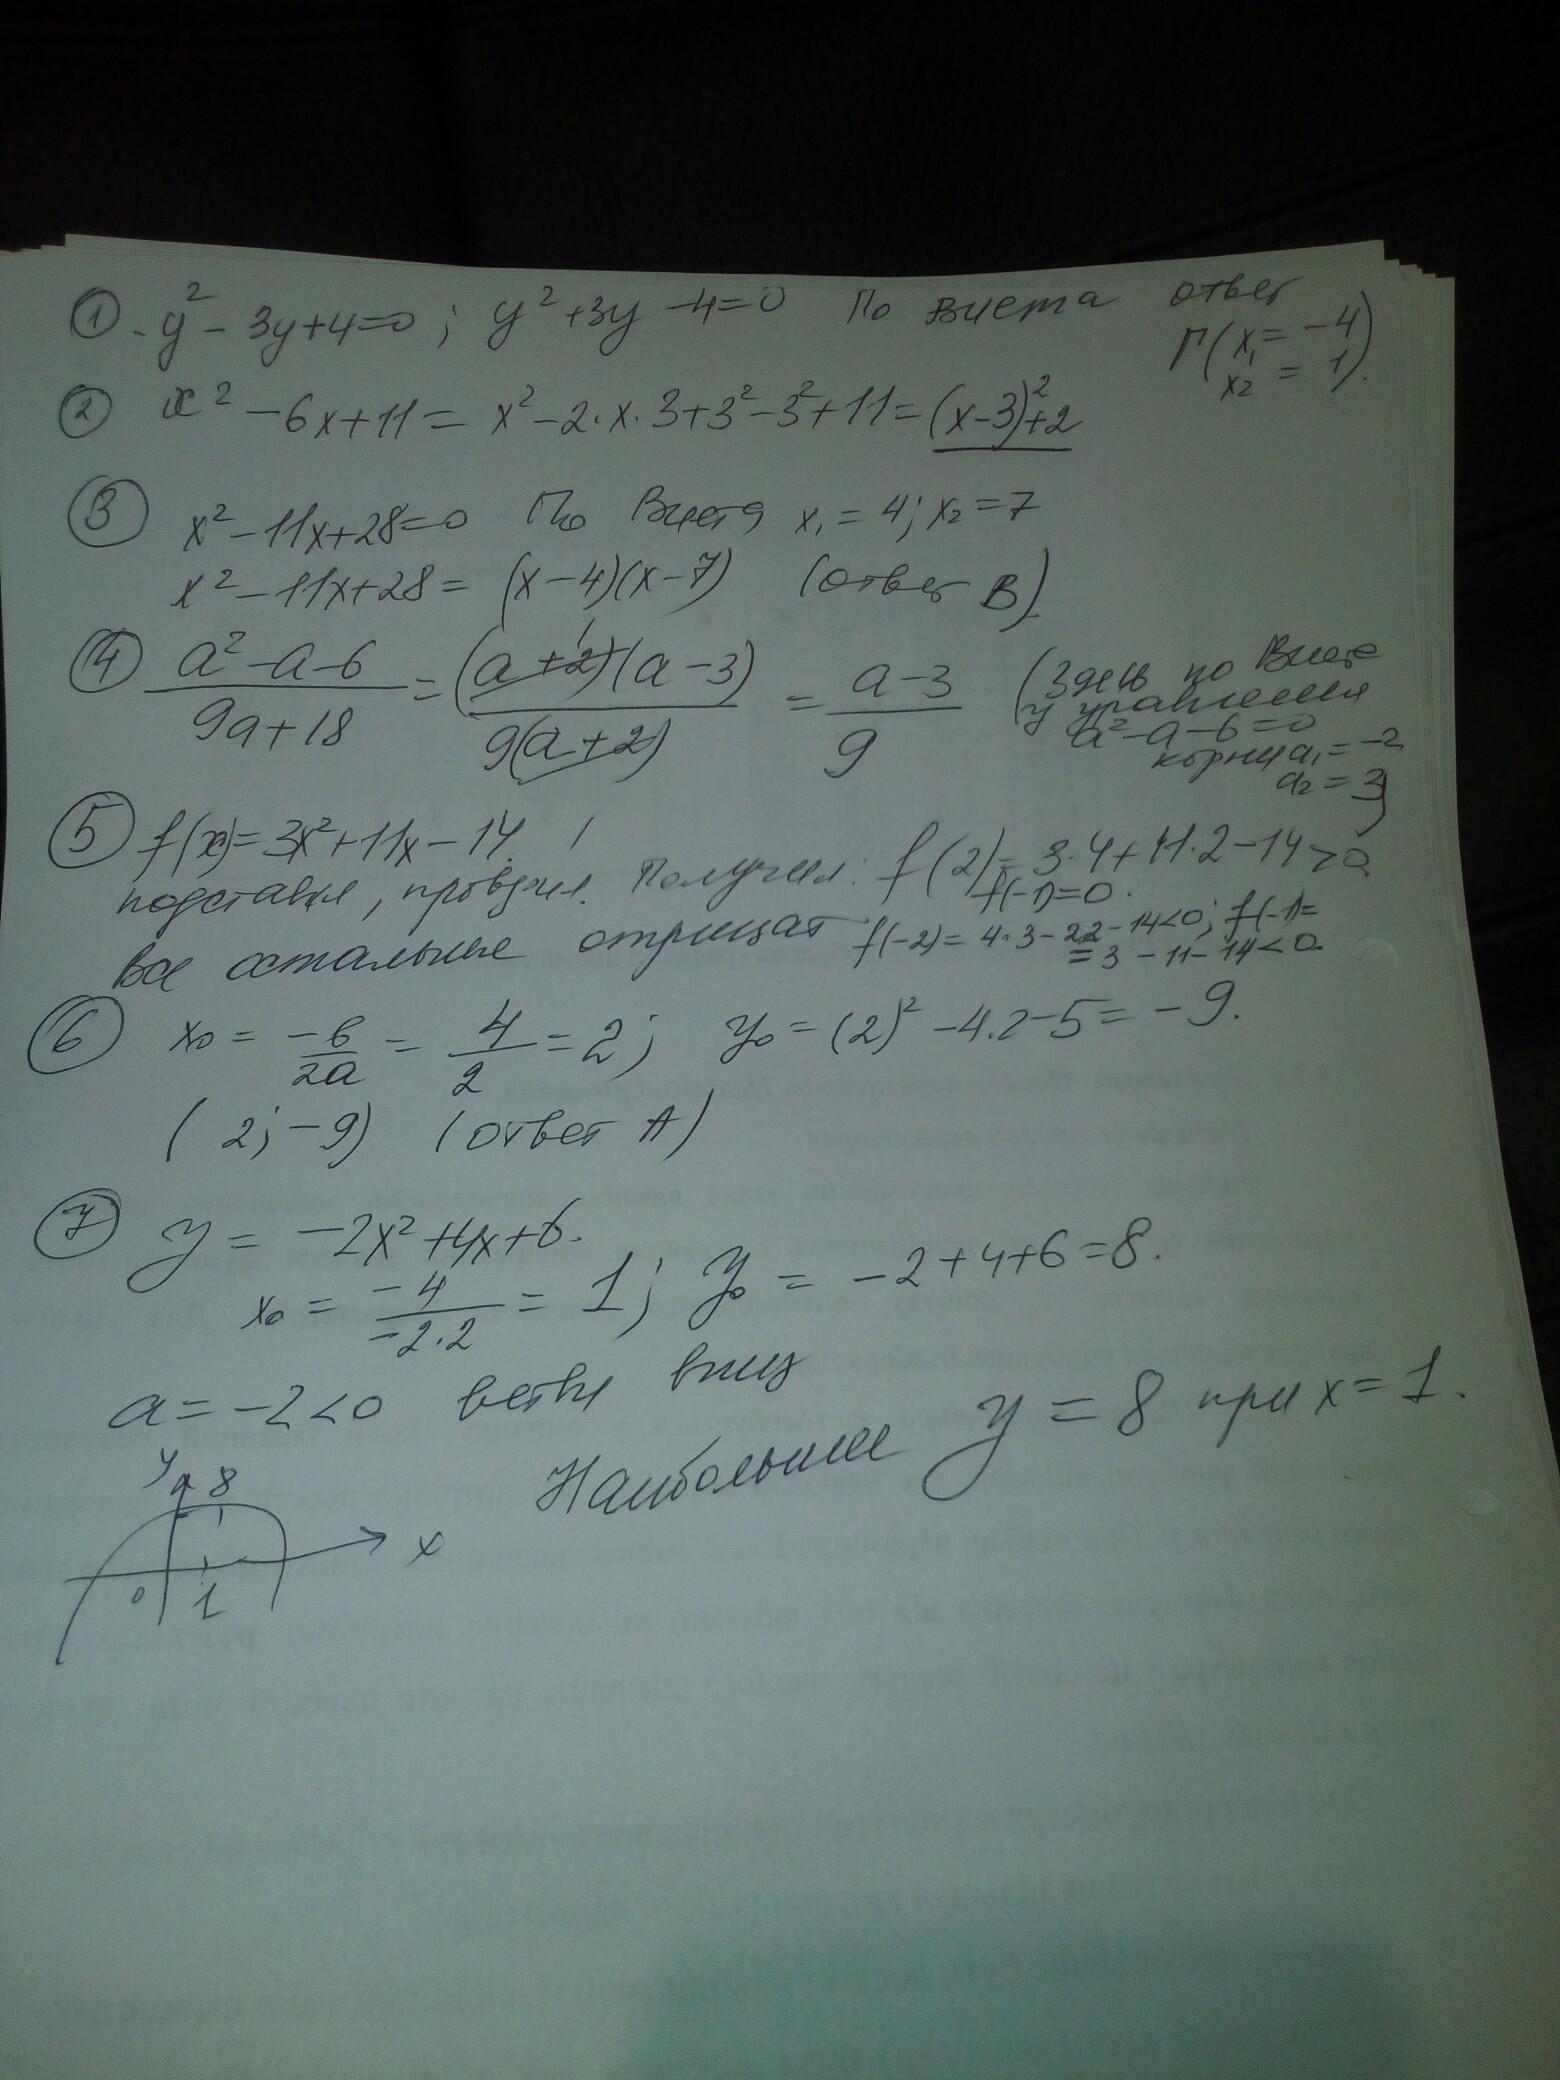 ① -y² - 3y+4=0; y²+3y-4=0 По Виета ответ
Г(x₁= -4
x₂ = 1).
② x²-6x+11= x²-2·x·3+3²-3²+11=(x-3)²+2
③ x²-11x+28=0 По Виета x₁=4; x₂=7
x²-11x+28= (x-4)(x-7) (ответ В)
④ a²-a-6 / 9a+18 = (a+2)(a-3) / 9(a+2) = a-3 / 9 (Здесь по Виета
у уравнения
a²-a-6=0
корни a₁=-2
a₂=3)
⑤ f(x)=3x²+11x-14.
подставил, проверил. Получил: f(2)=3·4+11·2-14>0
f(-1)=0.
все остальные отрицат f(-2)=4·3-22-14<0; f(-1)=
=3-11-14<0.
⑥ x₀ = -в/2a = 4/2 =2; y₀=(2)²-4·2-5=-9.
(2; -9) (ответ А)
⑦ y = -2x²+4x+6.
x₀ = -4/-2·2 = 1; y₀ = -2+4+6=8.
a=-2<0 ветви вниз
Наибольшее y=8 при x=1.
y 8
x
0 1